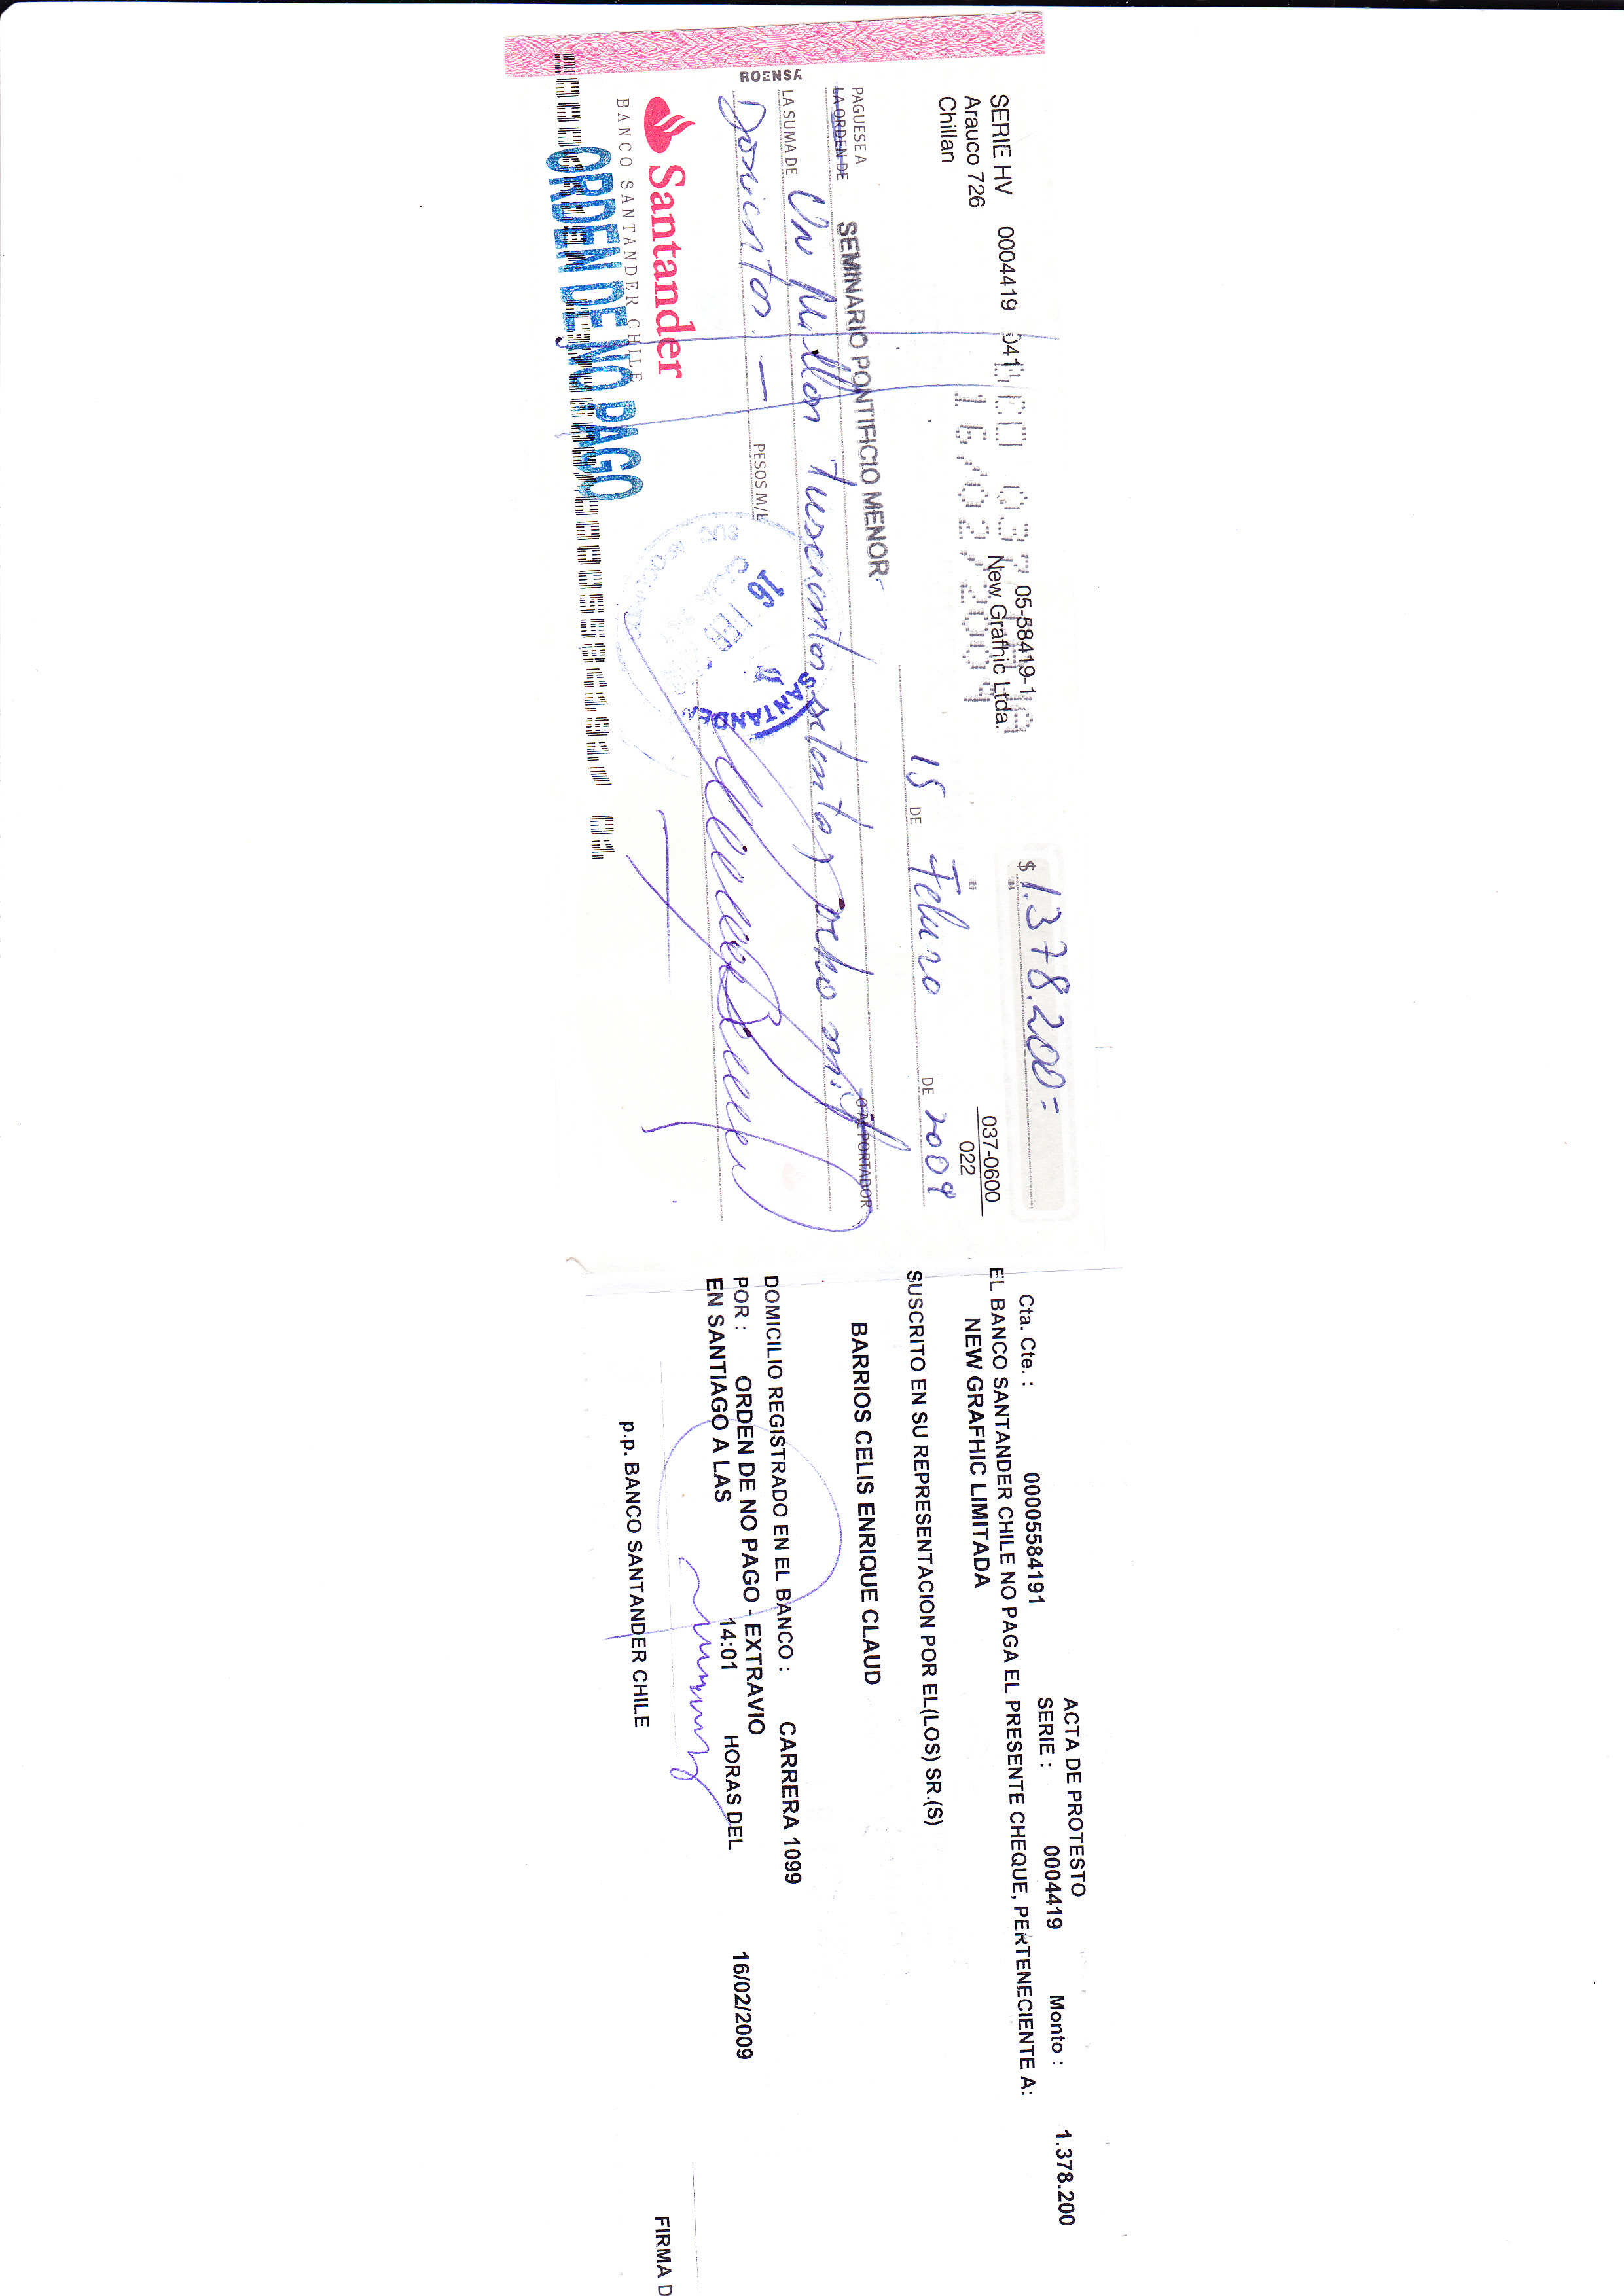 SERIE HV 0004419 041
Arauco 726
Chillan
05-58419-1
New Grafhic Ltda.
16/02/2009
$ 1.378.200=
037-0600
022
15 DE Febrero DE 2009
PAGUESE A
LA ORDEN DE SEMINARIO PONTIFICIO MENOR O AL PORTADOR
LA SUMA DE Un Millon Trescientos setenta y ocho mil
Doscientos.— PESOS M/L
ROENSA
Santander
BANCO SANTANDER CHILE
ORDEN DE NO PAGO
SANTANDER
16 FEB
SUC
ACTA DE PROTESTO
Cta. Cte. : 00005584191 SERIE : 0004419 Monto : 1.378.200
EL BANCO SANTANDER CHILE NO PAGA EL PRESENTE CHEQUE, PERTENECIENTE A:
NEW GRAFHIC LIMITADA
SUSCRITO EN SU REPRESENTACION POR EL(LOS) SR.(S)
BARRIOS CELIS ENRIQUE CLAUD
DOMICILIO REGISTRADO EN EL BANCO : CARRERA 1099
POR : ORDEN DE NO PAGO - EXTRAVIO
EN SANTIAGO A LAS 14:01 HORAS DEL 16/02/2009
p.p. BANCO SANTANDER CHILE
FIRMA D